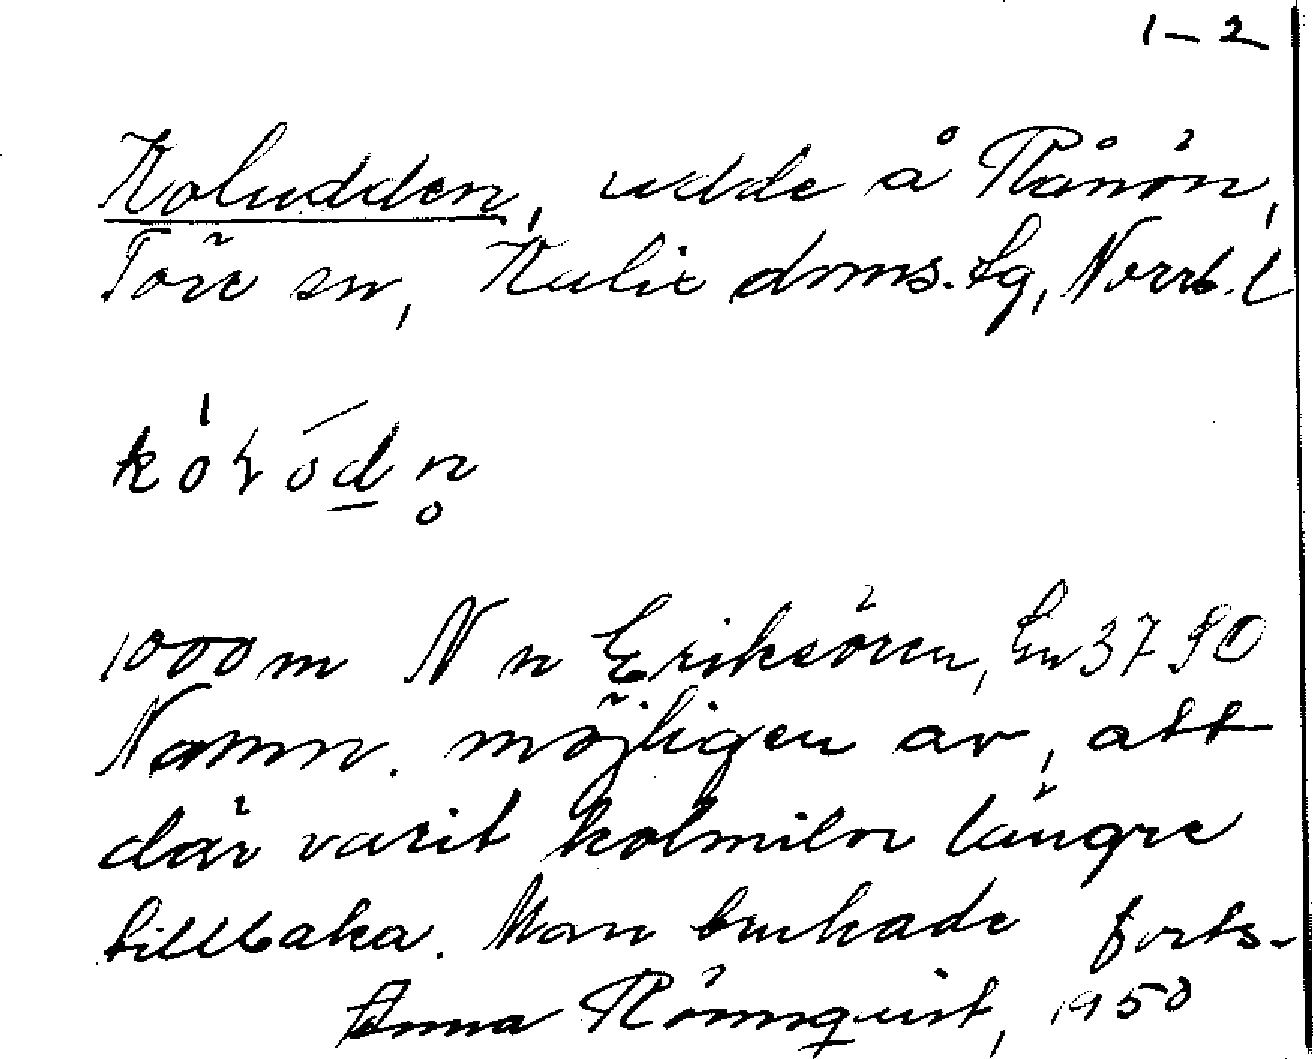 1-2
Koludden, udde å Rånön,
Töre sn, Kalix doms.sg, Norrb. l
1000 m N n Eriksören, Ln 3790
Namn. möjligen av, att
där varit kolmilor längre
tillbaka. Man brukade forts.
Anna Rönnquist, 1950